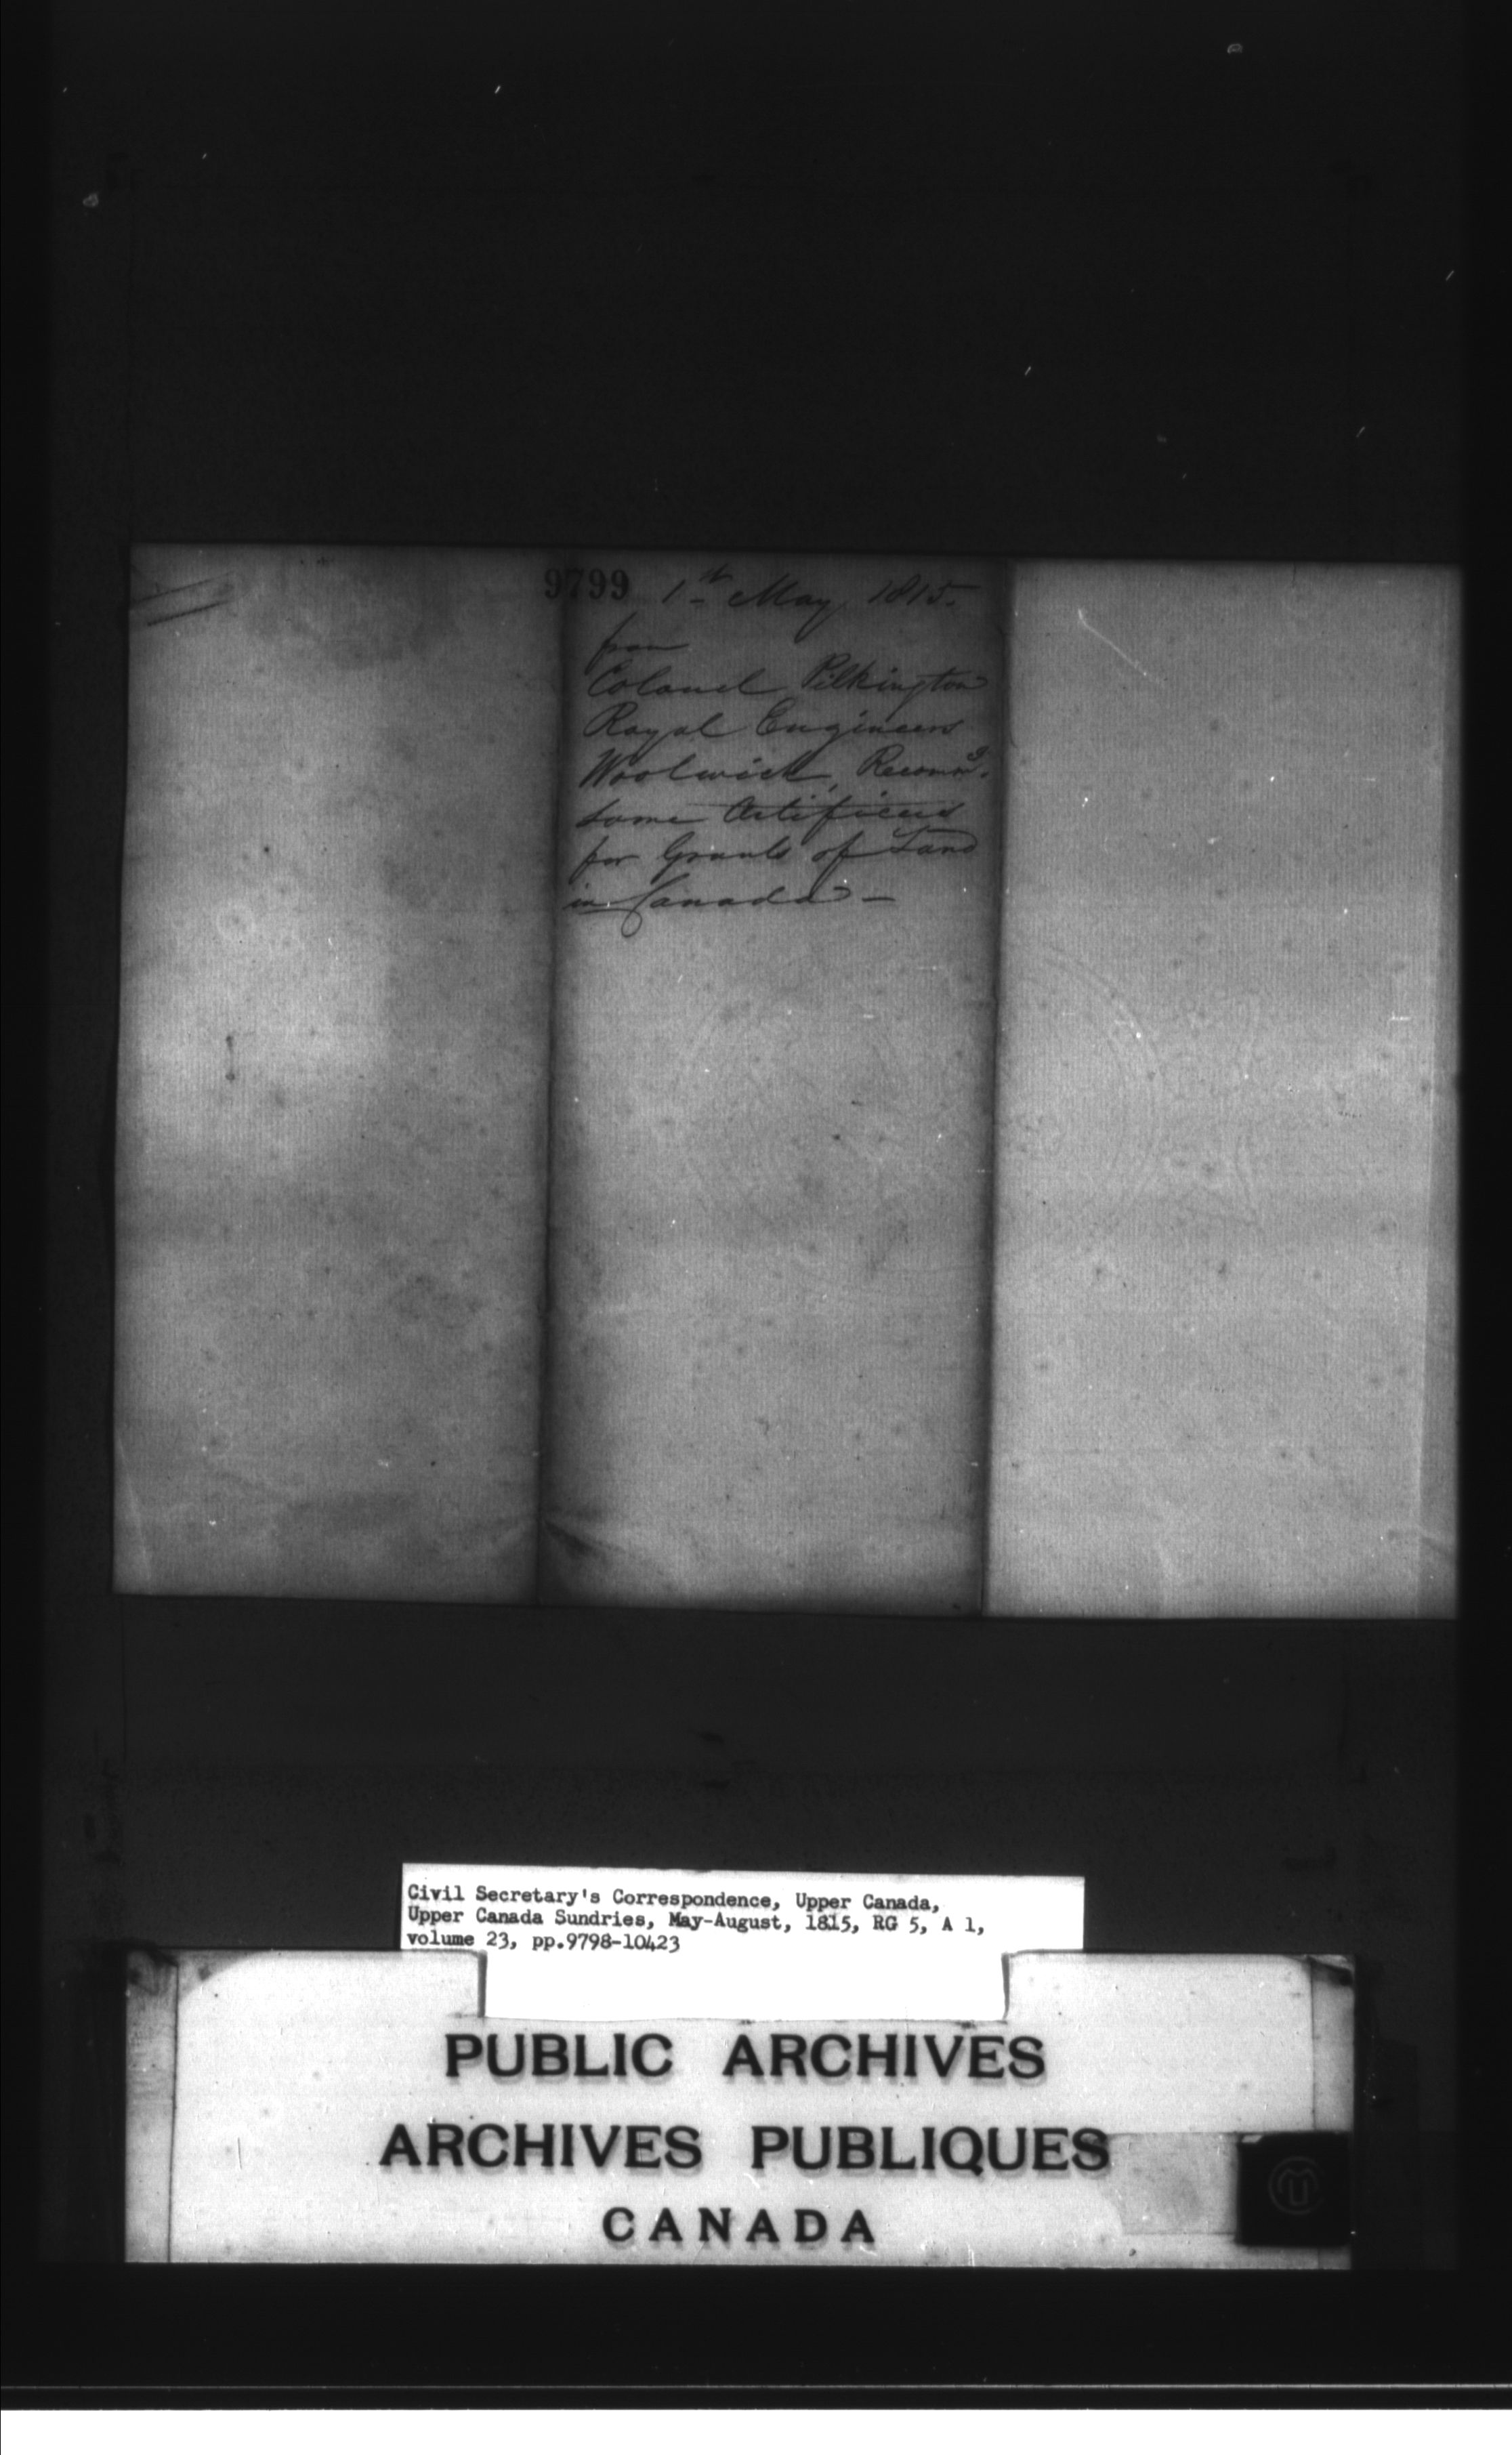 9799 1st May 1815.
from
Colonel Pilkington
Royal Engineers
Woolwich, Recommg.
some Artificers
for Grants of Land
in Canada —
Civil Secretary's Correspondence, Upper Canada,
Upper Canada Sundries, May-August, 1815, RG 5, A 1,
volume 23, pp.9798-10423
PUBLIC ARCHIVES
ARCHIVES PUBLIQUES
CANADA